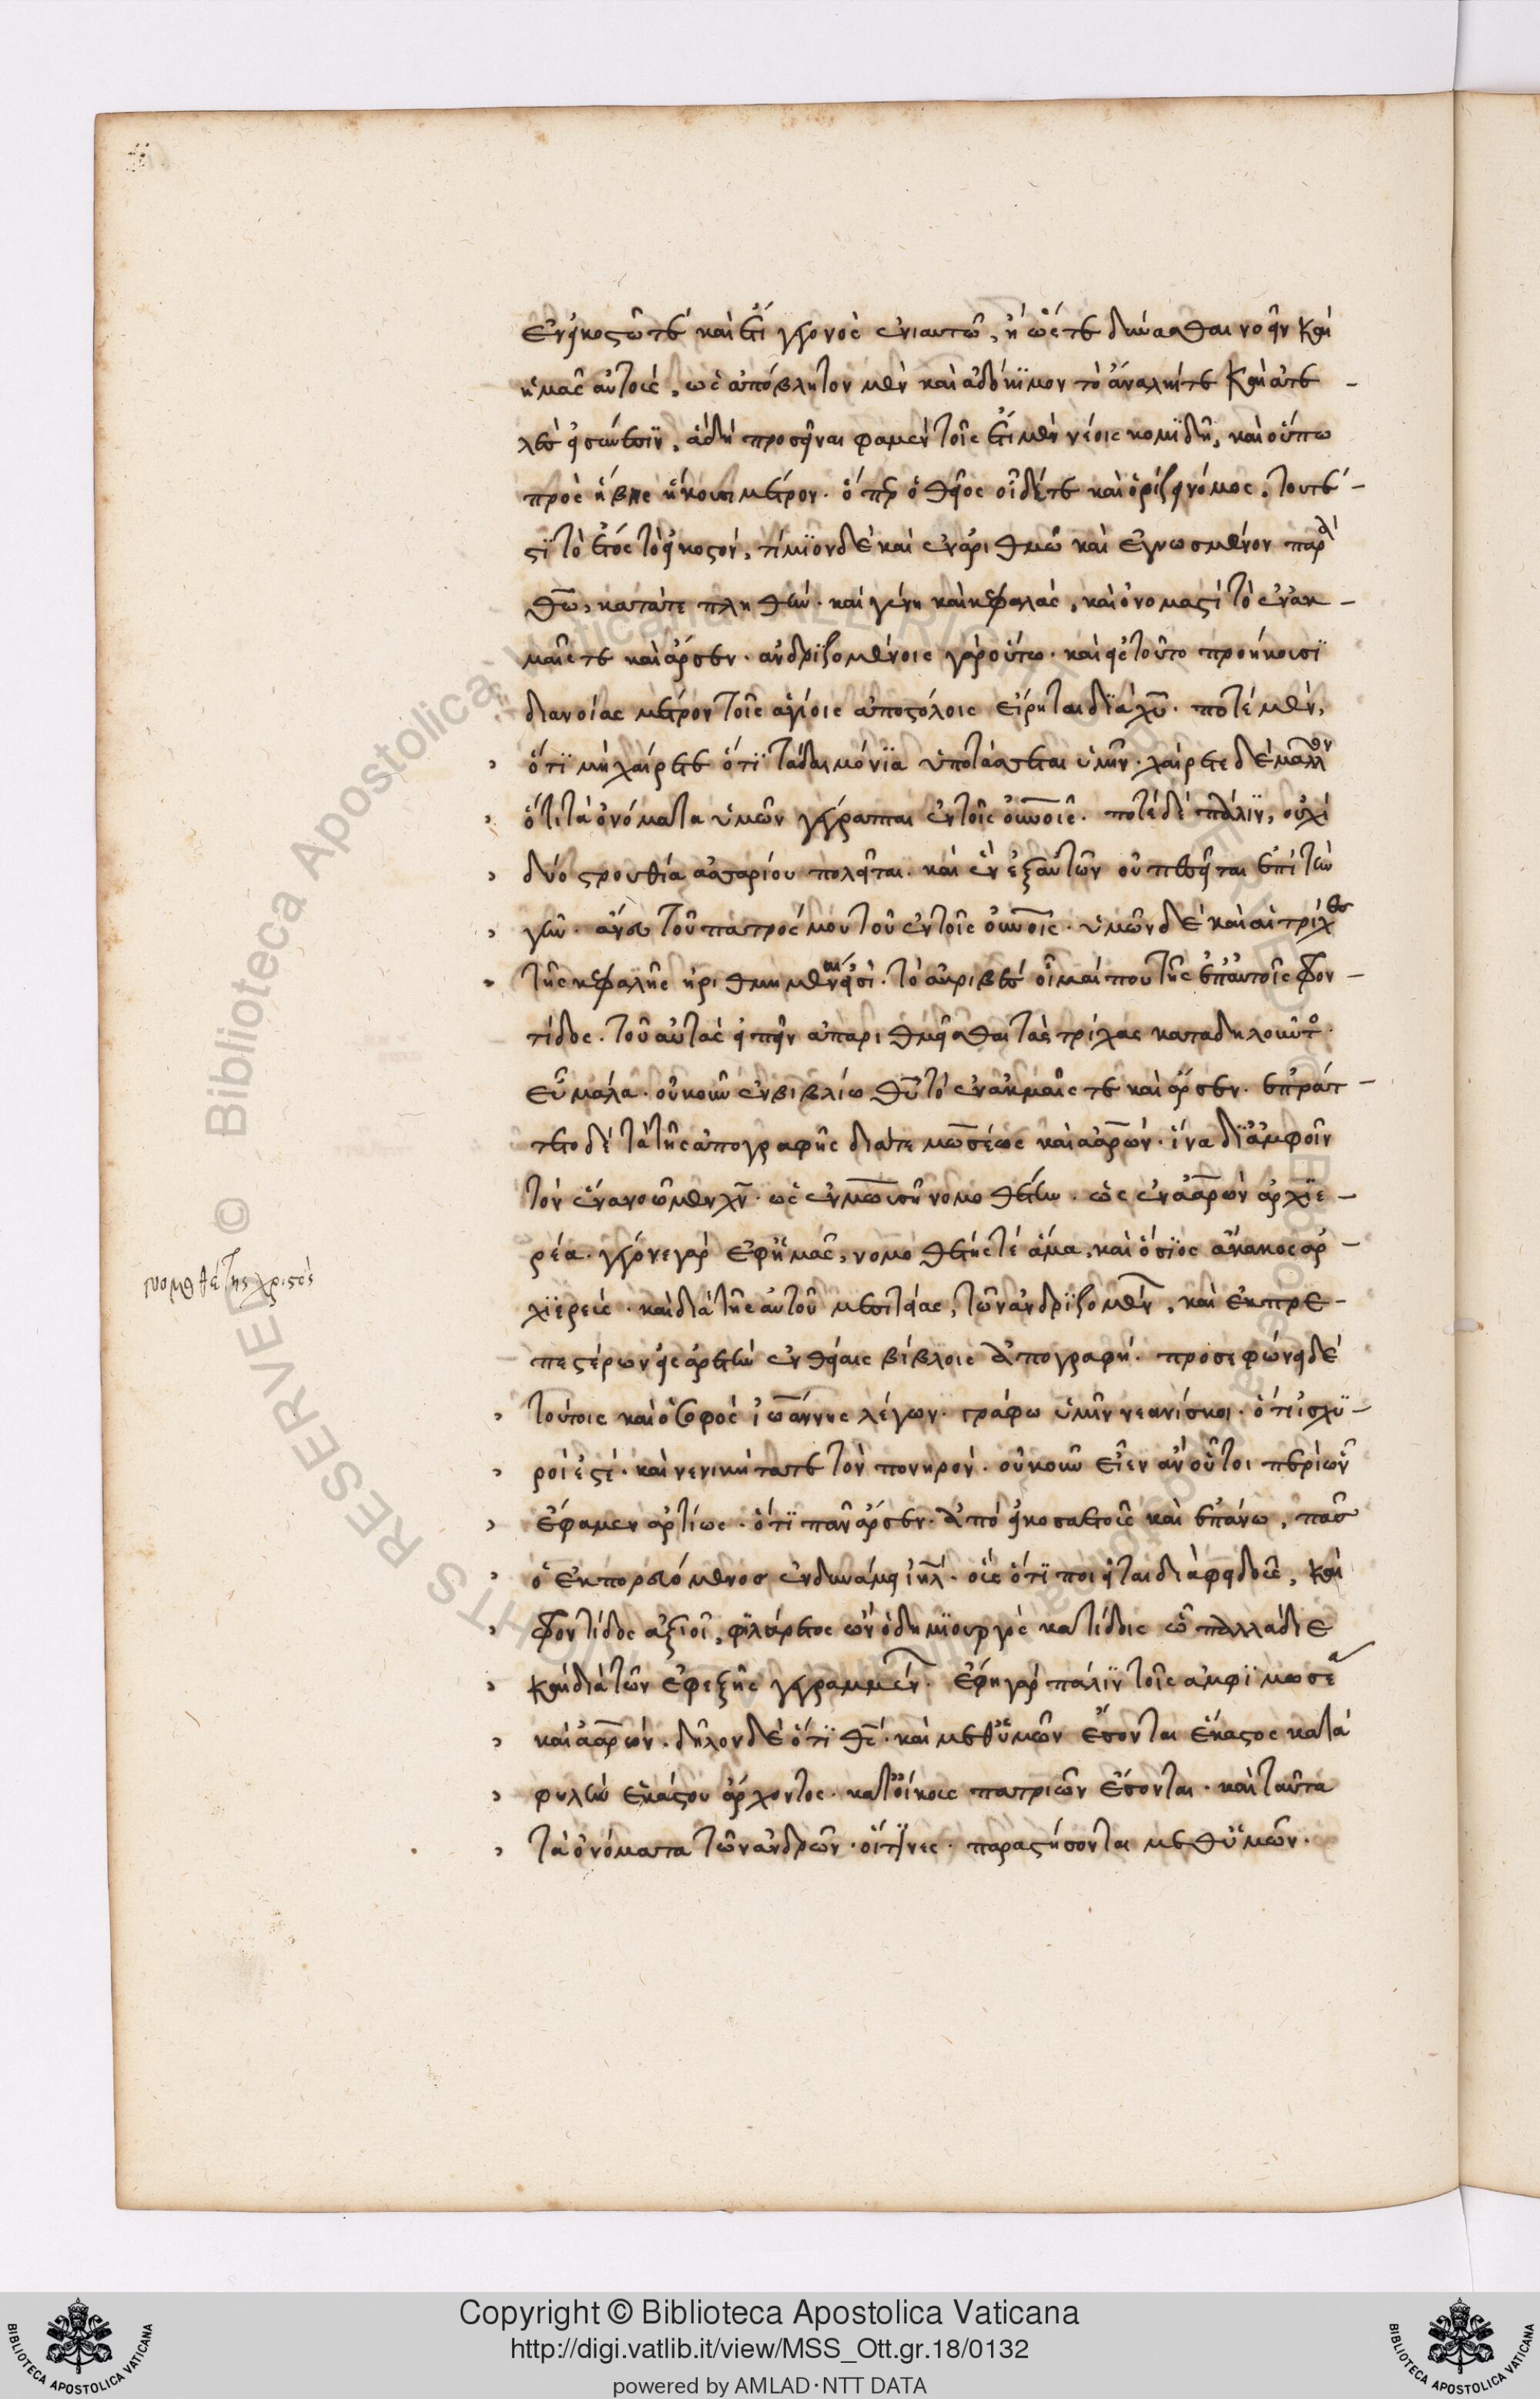 εἰκοστῶ τε καὶ ἔτι γεγονὸς ἐνιαυτῶ, ἢ ὥστε δύνασθαι νοεῖν καὶ
ἡμᾶς αὐτοὺς, ὡς ἀπόβλητον μὲν καὶ ἀδόκιμον τὸ ἄναλκί τε καὶ ἀτε-
λὲς εἰς σύνεσιν, ἃ δὴ προσεῖναι φαμὲν τοῖς ἔτι μὲν νέοις κομιδῆ, καὶ οὔπω
πρὸς ἥβης ἥκουσι μέτρον. ὅπερ ὁ θεῖος οἶδέ τε καὶ ὁρίζει νόμος, τουτέ-
στι τὸ ἔτος τὸ εἰκοστόν, τίμιον δὲ καὶ ἐνάριθμον καὶ ἐγνωσμένον παρὰ
θῶ, κατά τε πληθὺν. καὶ γένη καὶ κεφαλὰς, καὶ ὀνομαστὶ τὸ ἐν ἀκ-
μαῖς τε καὶ ἄρσεν. ἀνδριζομένοις γὰρ οὕτω. καὶ εἰς τοῦτο προήκουσι
διανοίας μέτρον τοῖς ἁγίοις ἀποστόλοις εἴρηται διὰ χυ. ποτὲ μὲν,
ὅτι μὴ χαίρετε ὅτι τὰ δαιμόνια ὑποτάσσεται ὑμῖν. χαίρετε δὲ μᾶλλον
ὅτι τὰ ὀνόματα ὑμῶν γέγραπται ἐν τοῖς οὐνοῖς. ποτὲ δὲ πάλιν, οὐχὶ
δύο στρουθία ἀσσαρίου πωλεῖται. καὶ ἓν ἐξ αὐτῶν οὐ πεσεῖται ἐπὶ τὴν
γῆν. ἄνευ τοῦ πατρός μου τοῦ ἐν τοῖς οὐνοῖς. ὑμῶν δὲ καὶ αἱ τρίχες
τῆς κεφαλῆς ἠριθμημέναι εἰσὶ. τὸ ἀκριβὲς οἶμαί που τῆς ἐπ' αὐτοῖς φρον-
τίδος. τοῦ αὐτὰς εἰπεῖν ἀπαριθμεῖσθαι τὰς τρίχας καταδηλοῦντος
εὖ μάλα. οὐκοῦν ἐν βιβλίω θυ τὸ ἐν ἀκμαῖς τε καὶ ἄρσεν. ἐπράτ-
τετο δὲ τὰ τῆς ἀπογραφῆς διά τε μωσέως καὶ ἀαρών. ἵνα δι' ἀμφοῖν
τὸν ἕνα νοῶμεν χν. ὡς ἐν μωϋσῆ νομοθέτην. ὡς ἐν ἀαρὼν ἀρχιε-
ρέα. γέγονε γὰρ ἐφ' ἡμᾶς, νομοθέτης τὲ ἅμα, καὶ ὅσιος ἄκακος ἀρ-
χιερεὺς. καὶ διὰ τῆς αὐτοῦ μεσιτείας, τῶν ἀνδριζομένων, καὶ ἐκπρε-
πεστέρων εἰς ἀρετὴν ἐν θείαις βίβλοις ἀπογραφή. προσεφώνει δὲ
τούτοις καὶ ὁ σοφὸς ἰωάννης λέγων. γράφω ὑμῖν νεανίσκοι. ὅτι ἰσχυ-
ροί ἐστέ. καὶ νενικήκατε τὸν πονηρόν. οὐκοῦν εἶεν ἂν οὗτοι περὶ ὧν
ἔφαμεν ἀρτίως. ὅτι πᾶν ἄρσεν. ἀπὸ εἰκοσαετοῦς καὶ ἐπάνω, πᾶς
ὁ ἐκπορευόμενος ἐν δυνάμει ιηλ. οἷς ὅτι ποιεῖται διὰ φειδοῦς, καὶ
φροντίδος ἀξιοῖ, φιλάρετος ὢν ὁ δημιουργὸς κατίδοις ὦ παλλάδιε
καὶ διὰ τῶν ἐφεξῆς γεγραμμένων. ἔφη γὰρ πάλιν τοῖς ἀμφὶ μωσέα
καὶ ἀαρών. δῆλον δὲ ὅτι θς. καὶ μεθ' ὑμῶν ἔσονται ἕκαστος κατὰ
φυλὴν ἑκάστου ἄρχοντος. κατ' οἴκους πατριῶν ἔσονται. καὶ ταῦτα
τὰ ὀνόματα τῶν ἀνδρῶν. οἵτινες. παραστήσονται μεθ' ὑμῶν.
νομοθέτης χριστὸς
Copyright © Biblioteca Apostolica Vaticana
http://digi.vatlib.it/view/MSS_Ott.gr.18/0132
powered by AMLAD·NTT DATA